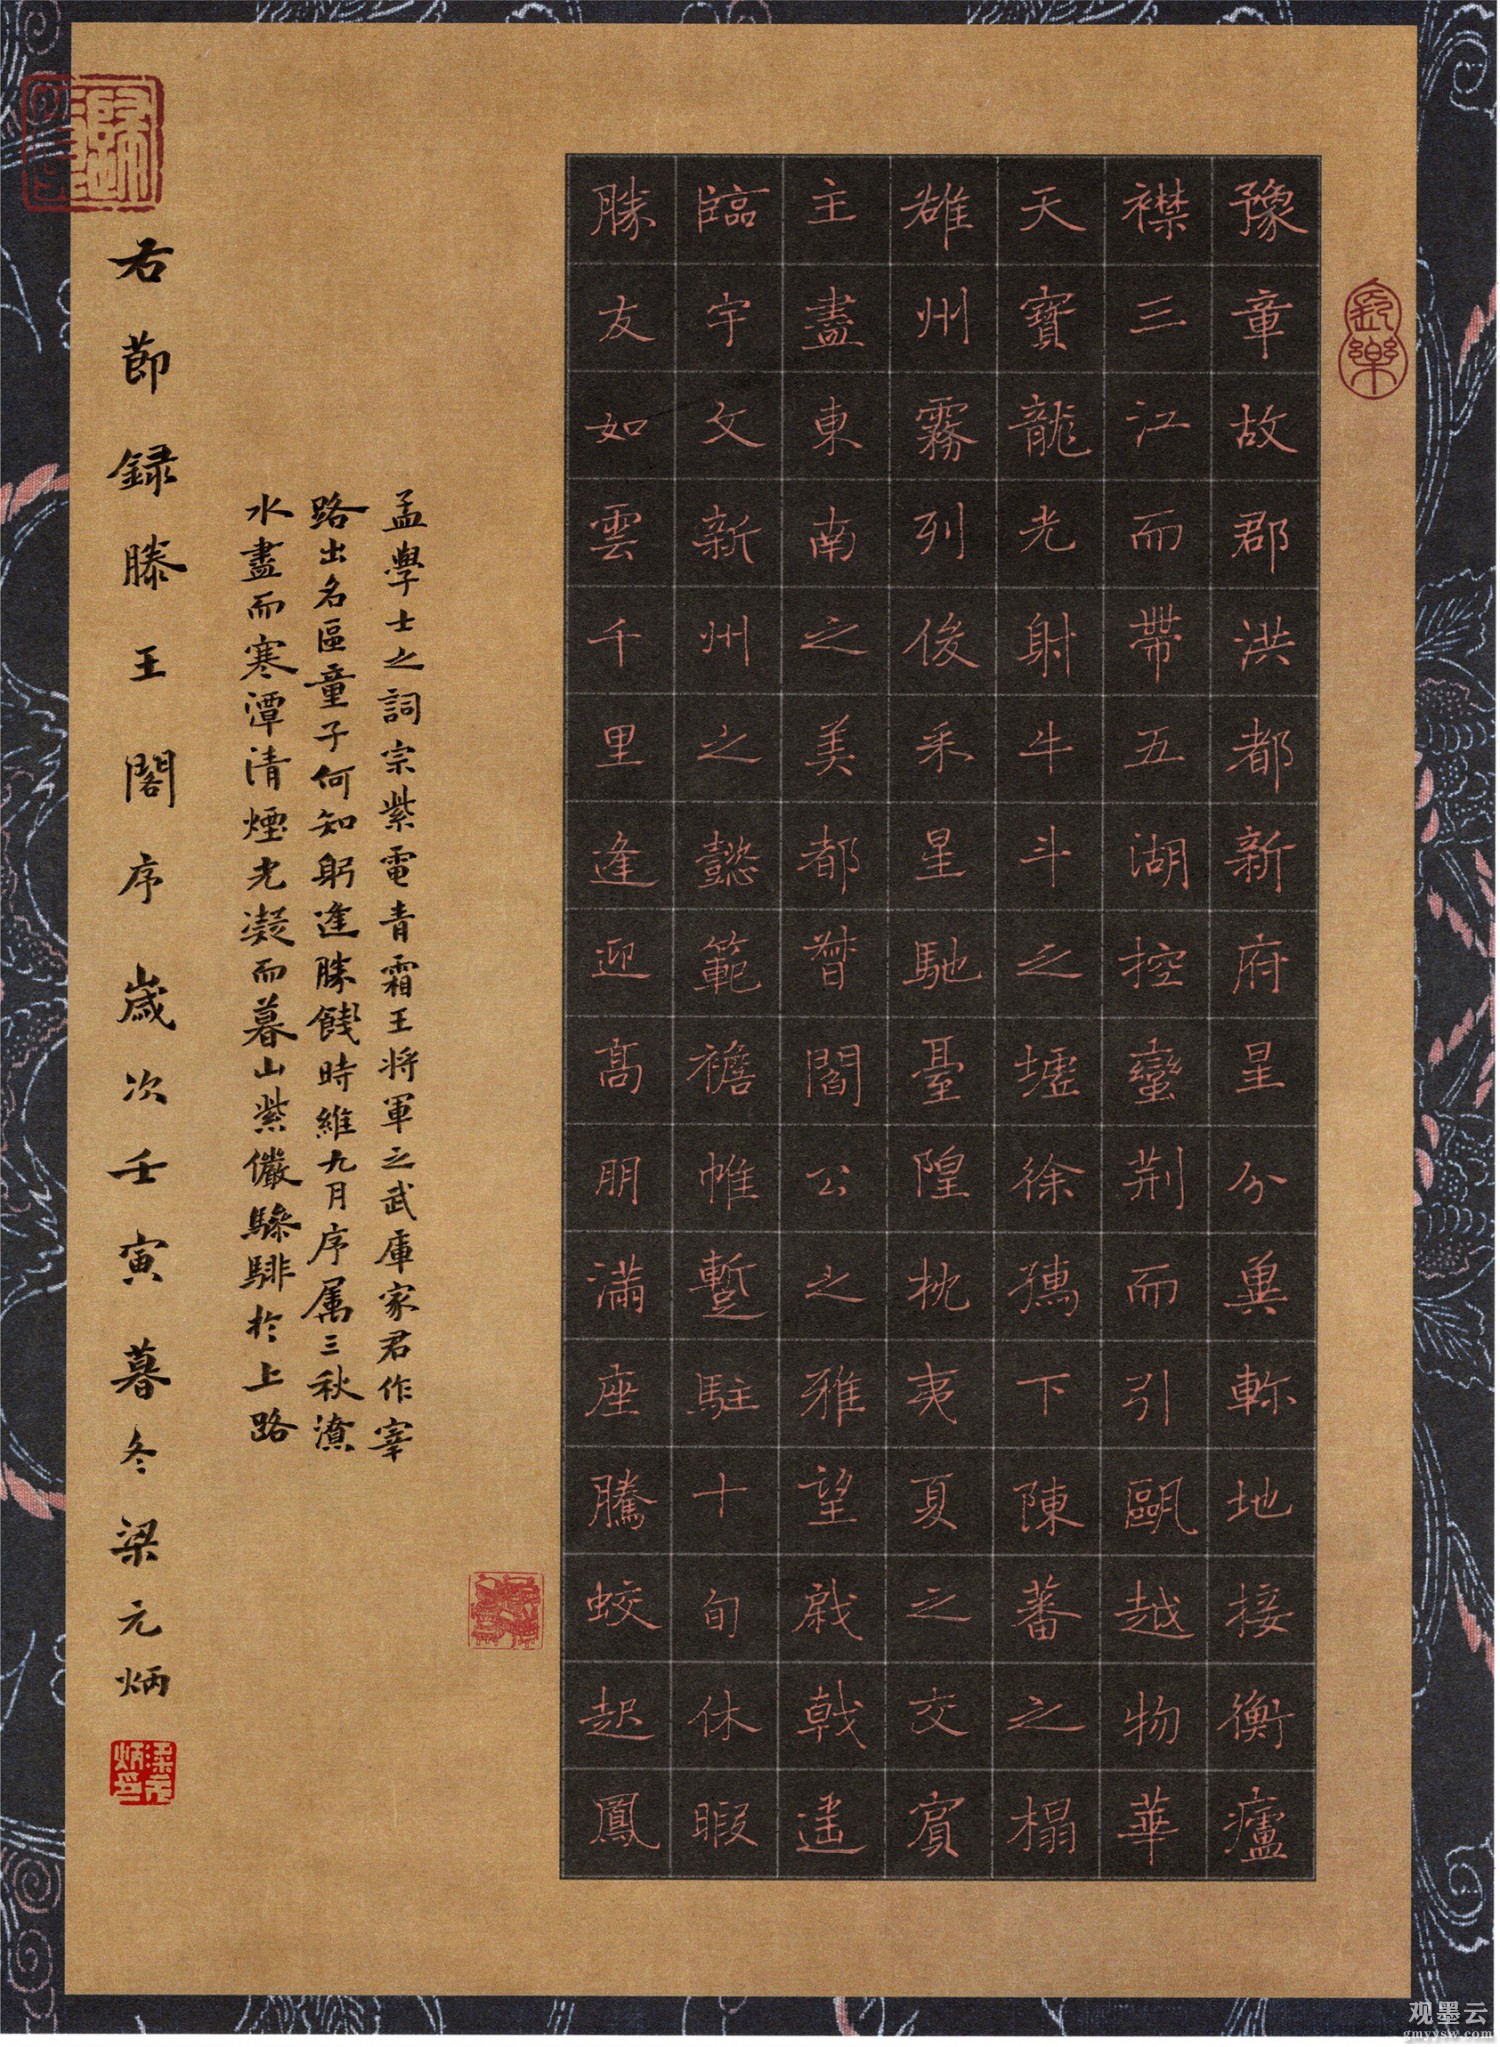 豫章故郡洪都新府星分翼軫地接衡廬
襟三江而帶五湖控蠻荆而引甌越物華
天寶龍光射牛斗之墟徐孺下陳蕃之榻
雄州霧列俊采星馳臺隍枕夷夏之交賓
主盡東南之美都督閻公之雅望戟戟遥
臨宇文新州之懿範襜帷暫駐十旬休暇
勝友如雲千里逢迎高朋滿座騰蛟起鳳
孟學士之詞宗紫電青霜王將軍之武庫家君作宰
路出名區童子何知躬逢勝餞時維九月序属三秋潦
水盡而寒潭清煙光凝而暮山紫儼驂騑於上路
右節録滕王閣序歲次壬寅暮冬梁元炳
梁元炳印
观墨云
gmyysw.com